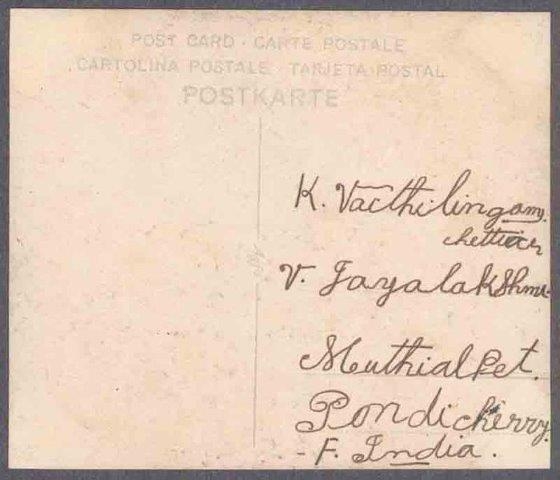 POST CARD · CARTE POSTALE
CARTOLINA POSTALE · TARJETA POSTAL
POSTKARTE
K. Vaithilingam
chettiar
V. Jayalakshmi
Muthialpet.
Pondicherry.
- F. India.